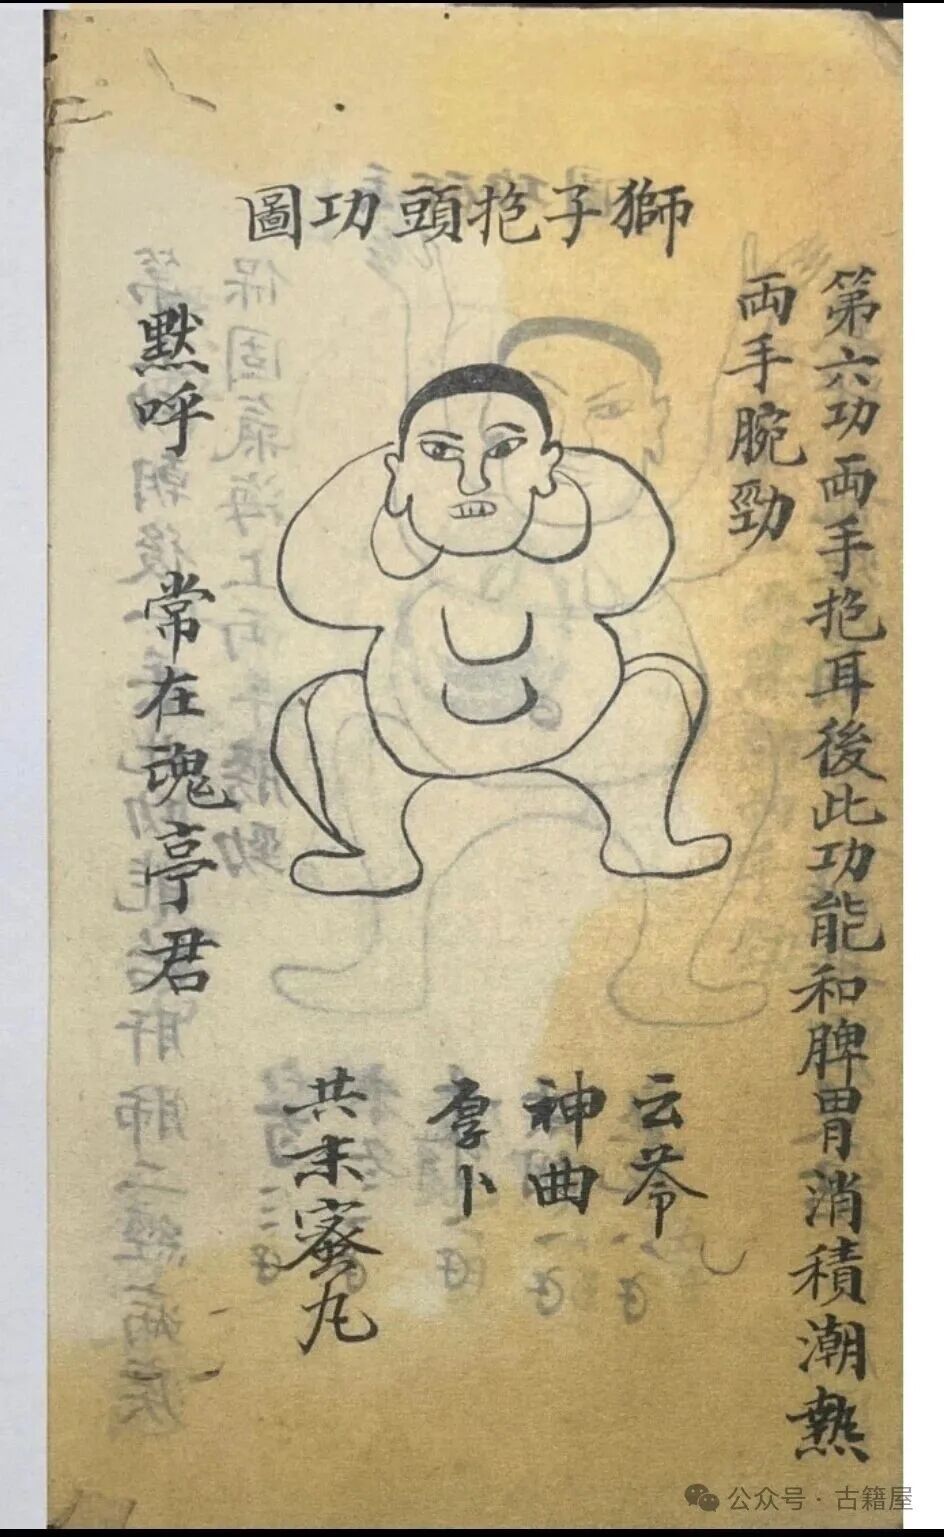 獅子抱頭功圖
第六功両手抱耳後此功能和脾胃消積潮熱
両手腕勁
云苓
神曲
厚卜
共末蜜丸
默呼 常在魂亭君
公众号 · 古籍屋